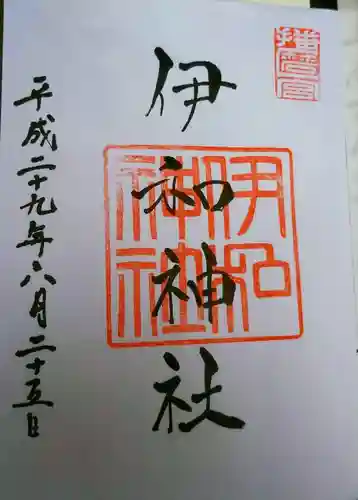 播磨国
伊和神社
伊和神社
平成二十九年六月二十五日